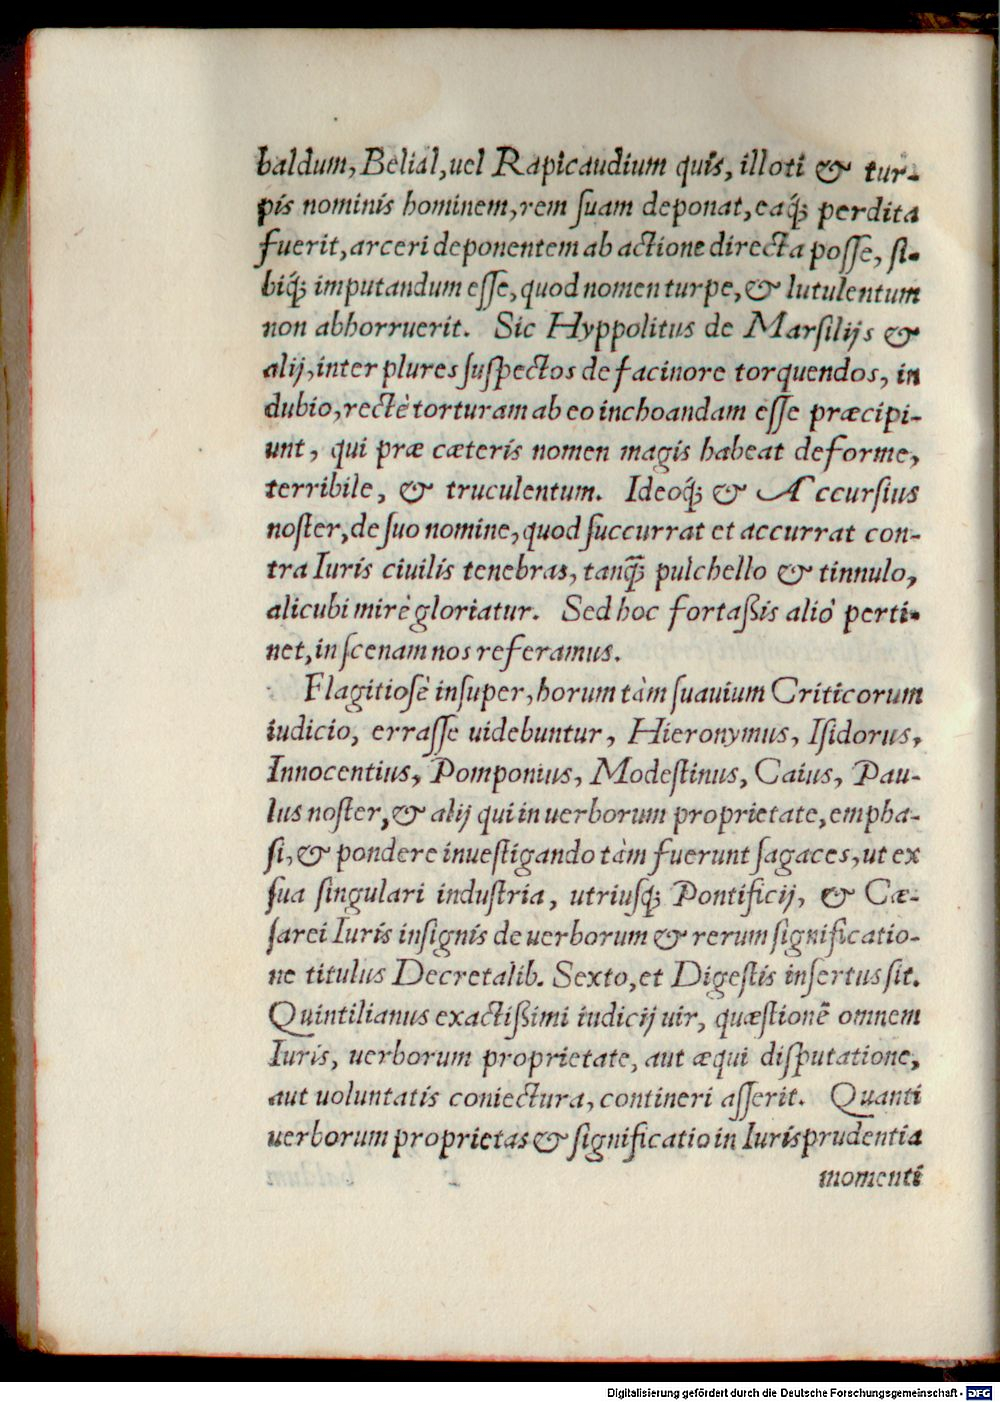 baldum, Belial, uel Rapicaudium quis, illoti & tur-
pis nominis hominem, rem ſuam deponat, eaq́ꝫ perdita
fuerit, arceri deponentem ab actione directa poſſe, ſi-
biq́ꝫ imputandum eſſe, quod nomen turpe, & lutulentum
non abhorruerit. Sic Hyppolitus de Marſilijs &
alij, inter plures ſuſpectos de facinore torquendos, in
dubio, rectè torturam ab eo inchoandam eſſe præcipi-
unt, qui præ cæteris nomen magis habeat deforme,
terribile, & truculentum. Ideoq́ꝫ & Accurſius
noſter, de ſuo nomine, quod ſuccurrat et accurrat con-
tra Iuris ciuilis tenebras, tanq̄ꝫ pulchello & tinnulo,
alicubi mirè gloriatur. Sed hoc fortaßis aliò perti-
net, in ſcenam nos referamus.
Flagitioſè inſuper, horum tàm ſuauium Criticorum
iudicio, erraſſe uidebuntur, Hieronymus, Iſidorus,
Innocentius, Pomponius, Modeſtinus, Caius, Pau-
lus noſter, & alij qui in uerborum proprietate, empha-
ſi, & pondere inueſtigando tàm fuerunt ſagaces, ut ex
ſua ſingulari induſtria, utriuſq́ꝫ Pontificij, & Cæ-
ſarei Iuris inſignis de uerborum & rerum ſignificatio-
ne titulus Decretalib. Sexto, et Digeſtis inſertus ſit.
Quintilianus exactißimi iudicij uir, quæſtionē omnem
Iuris, uerborum proprietate, aut æqui diſputatione,
aut uoluntatis coniectura, contineri aſſerit. Quanti
uerborum proprietas & ſignificatio in Iurisprudentia
momenti
Digitalisierung gefördert durch die Deutsche Forschungsgemeinschaft - DFG